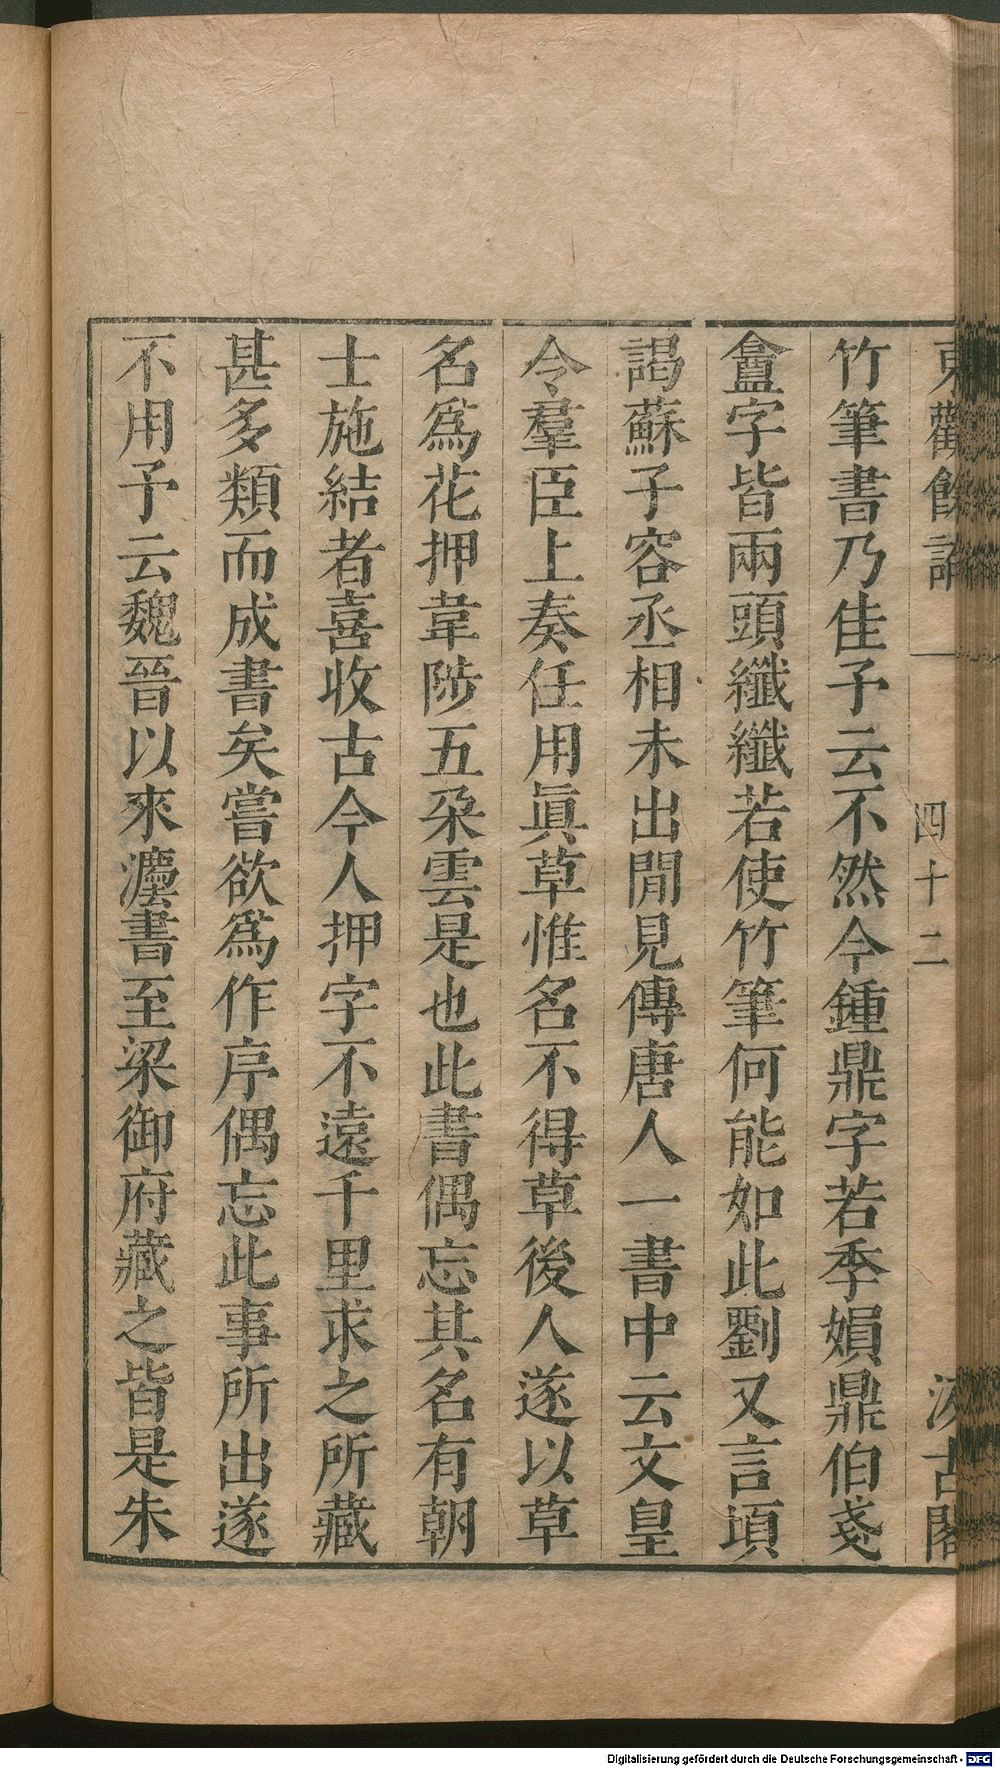 東觀餘論 四十二 汲古閣
竹筆書乃佳予云不然今鍾鼎字若季娟鼎伯戔
盦字皆兩頭纖纖若使竹筆何能如此劉又言頃
謁蘇子容丞相未出閒見傳唐人一書中云文皇
令羣臣上奏任用眞草惟名不得草後人遂以草
名爲花押韋陟五朶雲是也此書偶忘其名有朝
士施結者喜收古今人押字不遠千里求之所藏
甚多類而成書矣嘗欲爲作序偶忘此事所出遂
不用予云魏晉以來灋書至梁御府藏之皆是朱
Digitalisierung gefördert durch die Deutsche Forschungsgemeinschaft - DFG